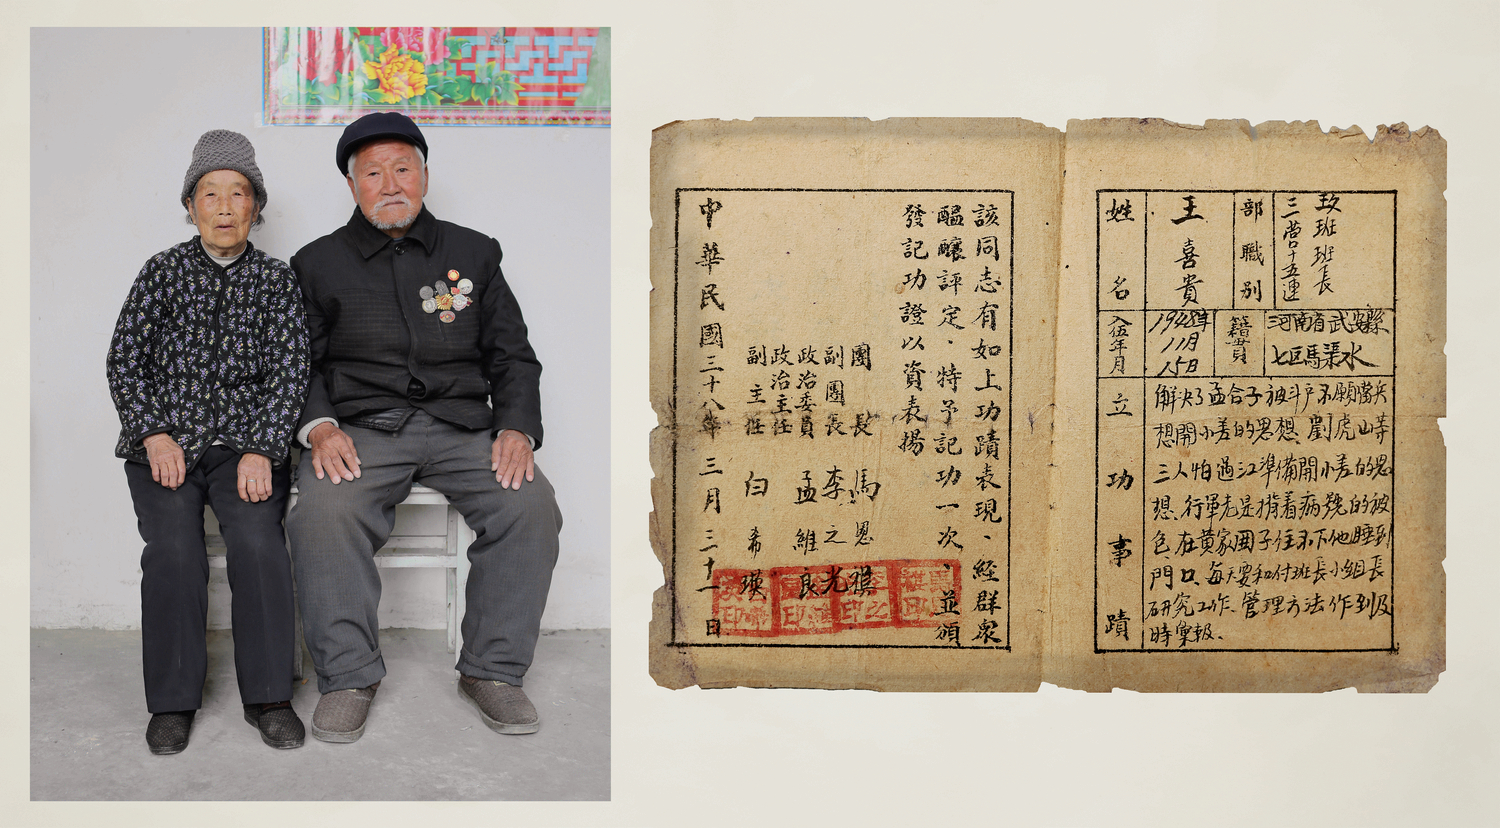 姓名
王喜貴
部職別
三营十五連
玫班班长
入伍年月
1948年
11月
15日
籍貫
河南省武安縣
七区馬渠水
立功事蹟
解决了孟合子被斗户不願當兵
想開小差的思想、劉虎山等
三人怕過江準備開小差的思
想、行軍老是揹着病號的被
包、在黄家圍子住不下他睡到
門口、每天要和付班長小組長
研究工作、管理方法作到及
時彙報、
該同志有如上功蹟表現、經群衆
醖釀評定、特予記功一次、並頒
發記功證以資表揚
團長 馬恩骐
副團長 李之光
政治委員 孟維良
政治主任
副主任 白希瑛
中華民國三十八年三月三十一日